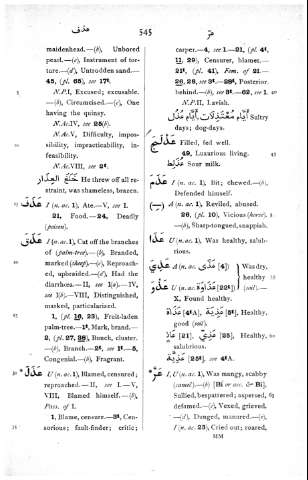 عذف
545
عرّ
maidenhead.—(b), Unbored
pearl.—(c), Instrument of tor-
ture.—(d), Untrodden sand.—
45, (pl. 65), see 17ᵉ.
N.P.I, Excused; excusable.
—(b), Circumcised.—(c), One
having the quinsy.
N.Ac.IV, see 25(b).
N.Ac.V, Difficulty, impos-
sibility, impracticability, in-
feasibility.
N.Ac.VIII, see 2ᵉ.
خَلَعَ العِذَار He threw off all re-
straint, was shameless, brazen.
عَذَفَ I (n. ac. 1), Ate.—V, see I.
21, Food.—24, Deadly
(poison).
عَذَقَ I (n. ac. 1), Cut off the branches
of (palm-tree).—(b), Branded,
marked (sheep).—(c), Reproach-
ed, upbraided.—(d), Had the
diarrhœa.—II, see I(a).—IV,
see I(b).—VIII, Distinguished,
marked, particularized.
1, (pl. 16, 23), Fruit-laden
palm-tree.—1ᵉ, Mark, brand.—
2, (pl. 27, 38), Bunch, cluster.
—(b), Branch.—2ᵉ, see 1ᵉ.—5,
Congenial.—(b), Fragrant.
عَذَلَ U (n. ac. 1), Blamed, censured;
reproached.—II, see I.—V,
VIII, Blamed himself.—(b),
Pass. of I.
1, Blame, censure.—3ᵉ, Cen-
sorious; fault-finder; critic;
carper.—4, see 1.—21, (pl. 4ᵉ,
11, 29), Censurer, blamer.—
21ᵉ, (pl. 41), Fem. of 21.—
26, 28, see 3ᵉ.—28ᵉ, Posterior,
behind.—(b), see 3ᵉ.—62, see 1.
N.P.II, Lavish.
أَيَّام مُعْتَذِلَات, أَيَّام عُذُل Sultry
days; dog-days.
عَذْلَج Filled, fed well.
49, Luxurious living.
عُذَلِط Sour milk.
عَذَمَ I (n. ac. 1), Bit; chewed.—(b),
Defended himself.
(—) A (n. ac. 1), Reviled, abused.
26, (pl. 10), Vicious (horse).
—(b), Sharp-tongued, snappish.
عَذَا U (n. ac. 1), Was healthy, salub-
rious.
عَذِيَ A (n. ac. عَذًى [4])
عَذُوَ U (n. ac. عَذَاوَة [22ᵉ]) } Was dry,
healthy
(soil).—
X, Found healthy.
عَذَاة [4ᵉA], عَذِيَة [5ᵉ], Healthy,
good (soil).
عَذِيّ [25], Healthy,
salubrious.
عَذِيَّة [25ᵉ], see 4ᵉA.
عَرَّ I, U (n. ac. 1), Was mangy, scabby
(camel).—(b) [Bi or acc. & Bi],
Sullied, bespattered; aspersed,
defamed.—(c), Vexed, grieved.
—(d), Dunged, manured.—(e),
I (n. ac. 23), Cried out; roared,
HM